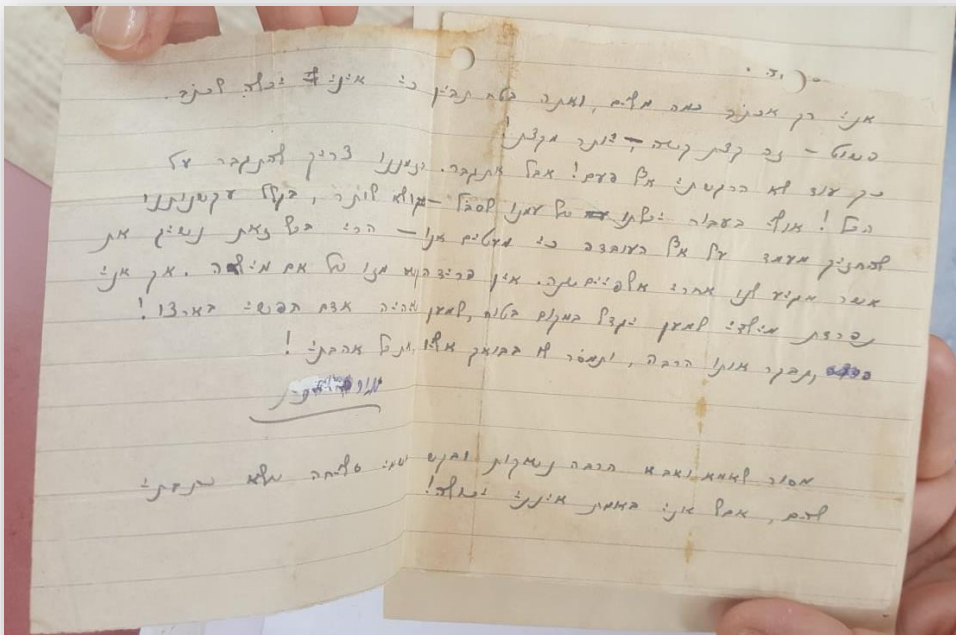 אני רק אכתוב כמה מלים, ואתה בטח תבין כי איני יכולה לכתוב.
פשוט – זה קצת קשה, יותר מקצת!
כך עוד לא הרגשתי אף פעם! אבל אתגבר. בזמננו צריך להתגבר על
הכל! אולי בעבור יכלתו של עמנו לסבל – ולא לותר, בגלל עקשנותנו
להחזיק מעמד על אף העובדה כי מעטים אנו – הרי בכל זאת נשיג את
אשר מגיע לנו אחרי אלפיים שנה. אין פרידה מזו של אם מילדה. אך אני
נפרדת מילדי למען יגדל במקום בטוח, למען יהיה אדם חפשי בארצו!
תבקר אותו הרבה, ותמסר לו בבואך אליו את כל אהבתי!
מסור לאמא ואבא הרבה נשיקות ובקש סליחה שלא כתבתי
להם, אבל אני באמת אינני יכולה!